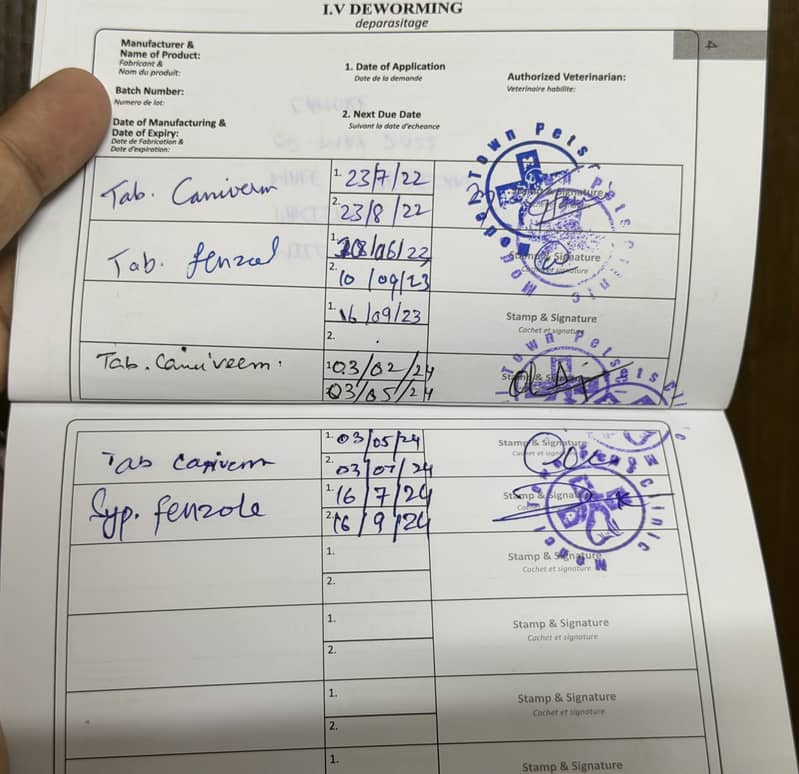 I.V DEWORMING
deparasitage
4
Manufacturer &
Name of Product:
Fabricant &
Nom du produit:
Batch Number:
Numero de lot:
Date of Manufacturing &
Date of Expiry:
Date de Fabrication &
Date d'expiration:
1. Date of Application
Date de la demande
2. Next Due Date
Suivant la date d'echeance
Authorized Veterinarian:
Veterinaire habilite:
Tab. Caniverm
1. 23/7/22
2. 23/8/22
Model Town Pets Clinic
& Signature
Tab. fenzol
1. 06/23
2. 10/09/23
Stamp & Signature
Cachet et signature
1. 16/09/23
2.
Stamp & Signature
Cachet et signature
Tab. Caniveem.
1. 03/02/24
03/05/24
Town Pets Cli
Tab Caniverm
1. 03/05/24
2. 03/07/24
Stamp & Signature
Syp. fenzole
1. 16/7/24
2. 16/9/24
Stamp & Signature
Model Clinic
1.
2.
Stamp & Signature
Cachet et signature
1.
2.
Stamp & Signature
Cachet et signature
1.
2.
Stamp & Signature
Cachet et signature
1.
Stamp & Signature